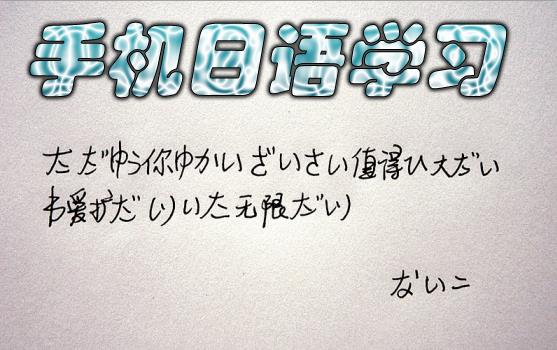 手机日语学习
ただゆう你ゆかいざいさい值得ひ大だい
わ爱がだいいた无限だい
ないニ